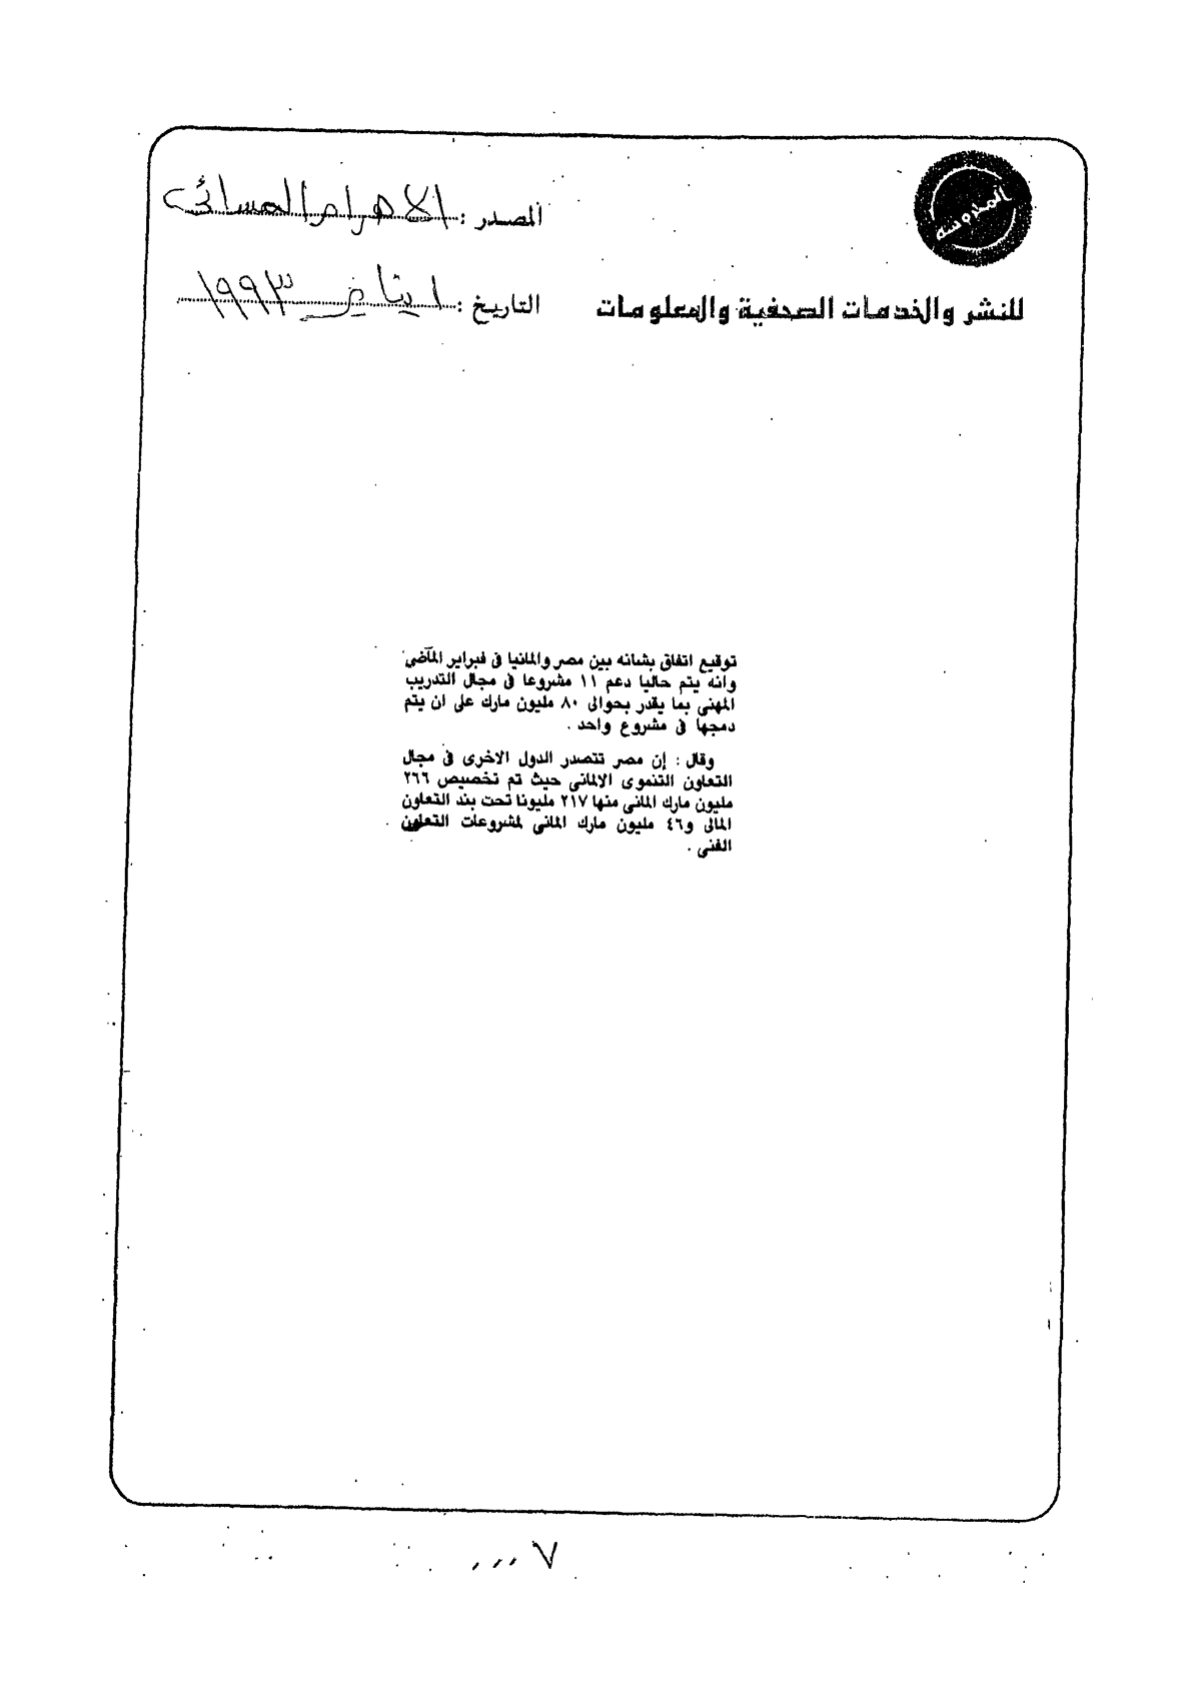 المحروسة
المصدر : الاهرام المسائى
للنشر والخدمات الصحفية والمعلومات
التاريخ : ١ يناير ١٩٩٣
توقيع اتفاق بشانه بين مصر والمانيا فى فبراير الماضى
وانه يتم حاليا دعم ١١ مشروعا فى مجال التدريب
المهنى بما يقدر بحوالى ٨٠ مليون مارك على ان يتم
دمجها فى مشروع واحد .
وقال : إن مصر تتصدر الدول الاخرى فى مجال
التعاون التنموى الالمانى حيث تم تخصيص ٢٦٦
مليون مارك المانى منها ٢١٧ مليونا تحت بند التعاون
المالى و٤٦ مليون مارك المانى لمشروعات التعاون
الفنى .
٧